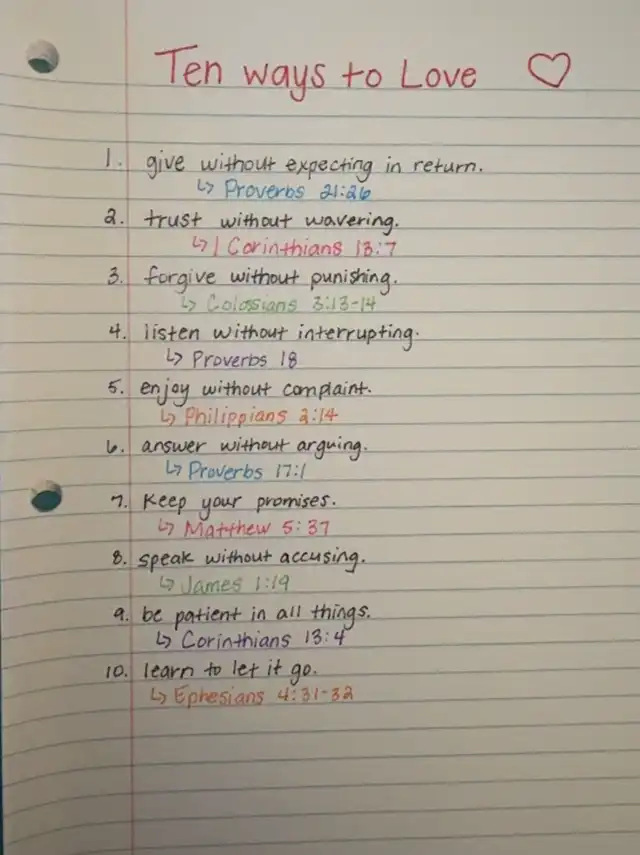 Ten ways to Love ♡
1. give without expecting in return.
↳ Proverbs 21:26
2. trust without wavering.
↳ 1 Corinthians 13:7
3. forgive without punishing.
↳ Colossians 3:13-14
4. listen without interrupting.
↳ Proverbs 18
5. enjoy without complaint.
↳ Philippians 2:14
6. answer without arguing.
↳ Proverbs 17:1
7. Keep your promises.
↳ Matthew 5:37
8. speak without accusing.
↳ James 1:19
9. be patient in all things.
↳ Corinthians 13:4
10. learn to let it go.
↳ Ephesians 4:31-32